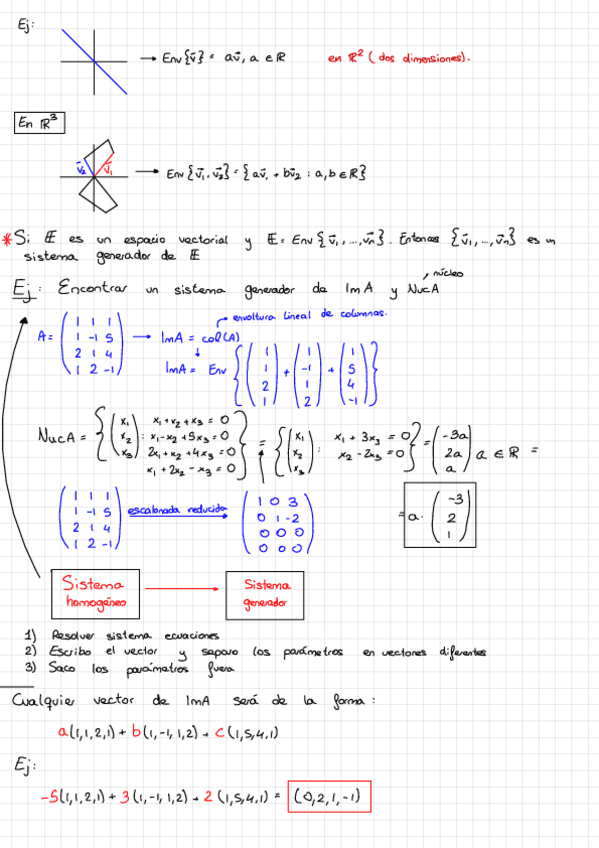 Ej:
→ Env {v⃗} = av⃗, a ∈ ℝ en ℝ² (dos dimensiones).
En ℝ³
v⃗₂ v⃗₁ → Env {v⃗₁, v⃗₂} = {av⃗₁ + bv⃗₂ : a, b ∈ ℝ}
* Si E es un espacio vectorial y E = Env {v⃗₁, ..., v⃗ₙ}. Entonces {v⃗₁, ..., v⃗ₙ} es un
sistema generador de E
núcleo
Ej: Encontrar un sistema generador de ImA y NucA
envoltura lineal de columnas.
A = (1 1 1 / 1 -1 5 / 2 1 4 / 1 2 -1) → ImA = col(A)
ImA = Env {(1 / 1 / 2 / 1) + (1 / -1 / 1 / 2) + (1 / 5 / 4 / -1)}
NucA = {(x₁ / x₂ / x₃) : x₁ + x₂ + x₃ = 0 / x₁ - x₂ + 5x₃ = 0 / 2x₁ + x₂ + 4x₃ = 0 / x₁ + 2x₂ - x₃ = 0} = {(x₁ / x₂ / x₃) : x₁ + 3x₃ = 0 / x₂ - 2x₃ = 0} = (-3a / 2a / a) a ∈ ℝ =
(1 1 1 / 1 -1 5 / 2 1 4 / 1 2 -1) escalonada reducida → (1 0 3 / 0 1 -2 / 0 0 0 / 0 0 0) = a · (-3 / 2 / 1)
Sistema homogéneo → Sistema generador
1) Resolver sistema ecuaciones
2) Escribo el vector y separo los parámetros en vectores diferentes
3) Saco los parámetros fuera
Cualquier vector de ImA será de la forma:
a(1,1,2,1) + b(1,-1,1,2) + c(1,5,4,1)
Ej:
-5(1,1,2,1) + 3(1,-1,1,2) + 2(1,5,4,1) = (0,2,1,-1)